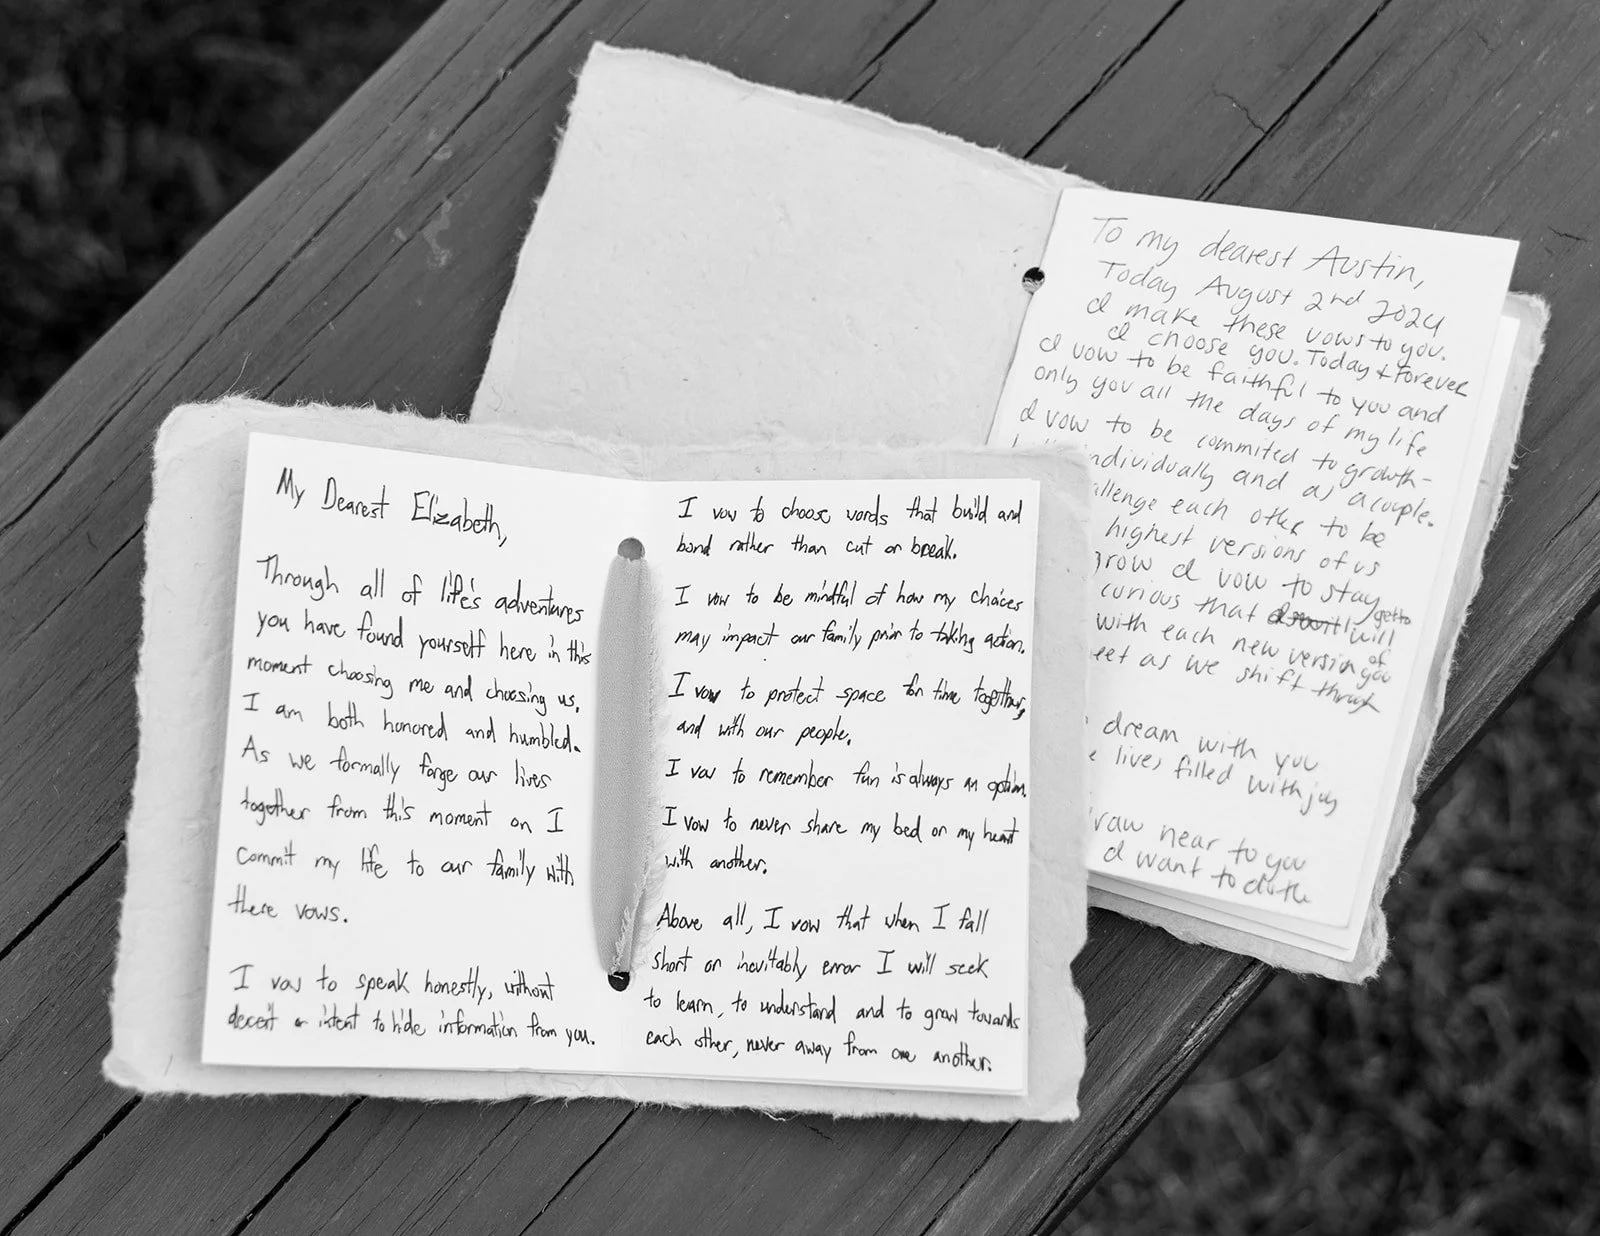 My Dearest Elizabeth,
Through all of life's adventures
you have found yourself here in this
moment choosing me and choosing us.
I am both honored and humbled.
As we formally forge our lives
together from this moment on I
commit my life to our family with
these vows.
I vow to speak honestly, without
deceit or intent to hide information from you.
I vow to choose words that build and
bond rather than cut or break.
I vow to be mindful of how my choices
may impact our family prior to taking action.
I vow to protect space for time together,
and with our people.
I vow to remember fun is always an option.
I vow to never share my bed or my heart
with another.
Above all, I vow that when I fall
short or inevitably error I will seek
to learn, to understand and to grow towards
each other, never away from one another.
To my dearest Austin,
Today August 2nd 2024
I make these vows to you.
I choose you. Today + Forever
I vow to be faithful to you and
only you all the days of my life
I vow to be commited to growth-
individually and as a couple.
each other to be
highest versions of us
grow I vow to stay
curious that I get to
will
with each new version of
you
as we shift through
dream with you
lives filled with joy
near to you
I want to